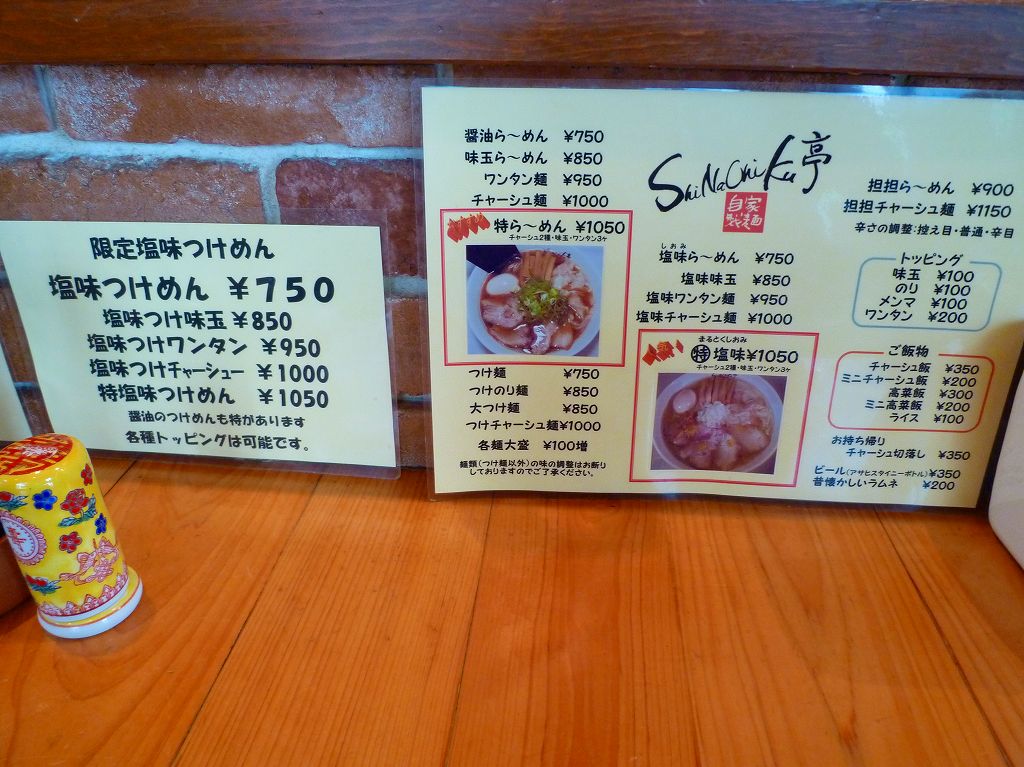 限定塩味つけめん
塩味つけめん ¥750
塩味つけ味玉 ¥850
塩味つけワンタン ¥950
塩味つけチャーシュー ¥1000
特塩味つけめん ¥1050
醤油のつけめんも特があります
各種トッピングは可能です。
醤油ら〜めん ¥750
味玉ら〜めん ¥850
ワンタン麺 ¥950
チャーシュ麺 ¥1000
特ら〜めん ¥1050
チャーシュ2種・味玉・ワンタン3ヶ
つけ麺 ¥750
つけのり麺 ¥850
大つけ麺 ¥850
つけチャーシュ麺¥1000
各麺大盛 ¥100増
麺類(つけ麺以外)の味の調整はお断り
しておりますのでご了承ください。
ShiNaChiKu亭
自家
製麺
しおみ
塩味ら〜めん ¥750
塩味味玉 ¥850
塩味ワンタン麺 ¥950
塩味チャーシュ麺 ¥1000
まるとくしおみ
特 塩味¥1050
チャーシュ2種・味玉・ワンタン3ヶ
担担ら〜めん ¥900
担担チャーシュ麺 ¥1150
辛さの調整:控え目・普通・辛目
トッピング
味玉 ¥100
のり ¥100
メンマ ¥100
ワンタン ¥200
ご飯物
チャーシュ飯 ¥350
ミニチャーシュ飯 ¥200
高菜飯 ¥300
ミニ高菜飯 ¥200
ライス ¥100
お持ち帰り
チャーシュ切落し ¥350
ビール(アサヒスタイニーボトル)¥350
昔懐かしいラムネ ¥200